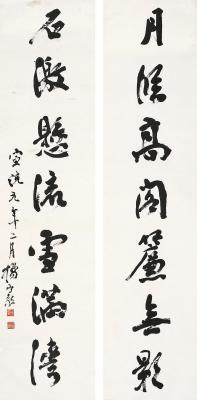 月移高阁簾無影
石激懸流雪滿灣
宣統元年十二月 楊守敬